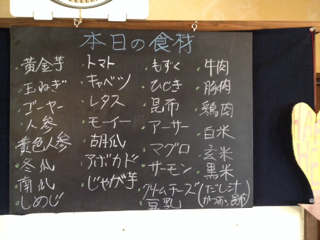 本日の食材
・黄金芋
・玉ねぎ
・ゴーヤー
・人参
・黄色人参
・冬瓜
・南瓜
・しめじ
・トマト
・キャベツ
・レタス
・モーイー
・胡瓜
・アボカド
・じゃがいも芋
・もずく
・ひじき
・昆布
・アーサー
・マグロ
・サーモン
・クリームチーズ
・豆乳
・牛肉
・豚肉
・鶏肉
・白米
・玄米
・黒米
(だし汁
かつお、昆布)